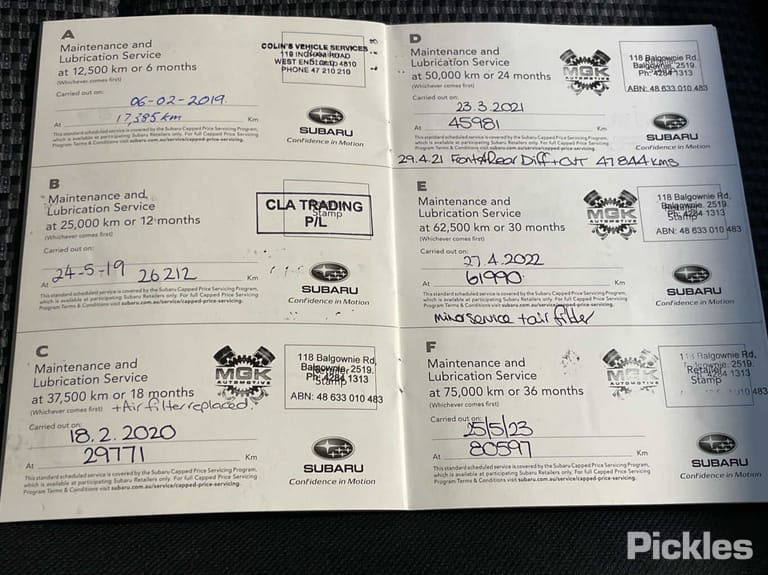 A
Maintenance and
Lubrication Service
at 12,500 km or 6 months
(Whichever comes first)
COLIN'S VEHICLE SERVICES
119 INGHAM ROAD
WEST END QLD 4810
PHONE 47 210 210
Carried out on:
06-02-2019.
At 17,385 km Km
SUBARU
Confidence in Motion
This standard scheduled service is covered by the Subaru Capped Price Servicing Program,
which is available at participating Subaru Retailers only. For full Capped Price Servicing
Program Terms & Conditions visit subaru.com.au/service/capped-price-servicing.
B
Maintenance and
Lubrication Service
at 25,000 km or 12 months
(Whichever comes first)
CLA TRADING
P/L
Stamp
Carried out on:
24-5-19 26212
At Km
SUBARU
Confidence in Motion
This standard scheduled service is covered by the Subaru Capped Price Servicing Program,
which is available at participating Subaru Retailers only. For full Capped Price Servicing
Program Terms & Conditions visit subaru.com.au/service/capped-price-servicing.
C
Maintenance and
Lubrication Service
at 37,500 km or 18 months
(Whichever comes first) + Air filter replaced.
MGK
AUTOMOTIVE
118 Balgownie Rd,
Balgownie, 2519.
Ph: 4284 1313
Stamp
ABN: 48 633 010 483
Carried out on:
18.2.2020
29771
At Km
SUBARU
Confidence in Motion
This standard scheduled service is covered by the Subaru Capped Price Servicing Program,
which is available at participating Subaru Retailers only. For full Capped Price Servicing
Program Terms & Conditions visit subaru.com.au/service/capped-price-servicing.
D
Maintenance and
Lubrication Service
at 50,000 km or 24 months
(Whichever comes first)
MGK
AUTOMOTIVE
118 Balgownie Rd,
Balgownie, 2519.
Ph: 4284 1313
ABN: 48 633 010 483
Carried out on:
23.3.2021
45981
At Km
SUBARU
Confidence in Motion
This standard scheduled service is covered by the Subaru Capped Price Servicing Program,
which is available at participating Subaru Retailers only. For full Capped Price Servicing
Program Terms & Conditions visit subaru.com.au/service/capped-price-servicing.
29.4.21 Diff + 47844 KMS
E
Maintenance and
Lubrication Service
at 62,500 km or 30 months
(Whichever comes first)
MGK
AUTOMOTIVE
118 Balgownie Rd,
Balgownie, 2519.
Ph: 4284 1313
Stamp
ABN: 48 633 010 483
Carried out on:
27.4.2022
61990
At Km
SUBARU
Confidence in Motion
This standard scheduled service is covered by the Subaru Capped Price Servicing Program,
which is available at participating Subaru Retailers only. For full Capped Price Servicing
Program Terms & Conditions visit subaru.com.au/service/capped-price-servicing.
minor service + air filter
F
Maintenance and
Lubrication Service
at 75,000 km or 36 months
(Whichever comes first)
MGK
AUTOMOTIVE
118 Balgownie Rd,
Balgownie, 2519.
Retailer
Stamp
ABN: 48 633 010 483
Carried out on:
25/5/23
80597
At Km
SUBARU
Confidence in Motion
This standard scheduled service is covered by the Subaru Capped Price Servicing Program,
which is available at participating Subaru Retailers only. For full Capped Price Servicing
Program Terms & Conditions visit subaru.com.au/service/capped-price-servicing.
Pickles